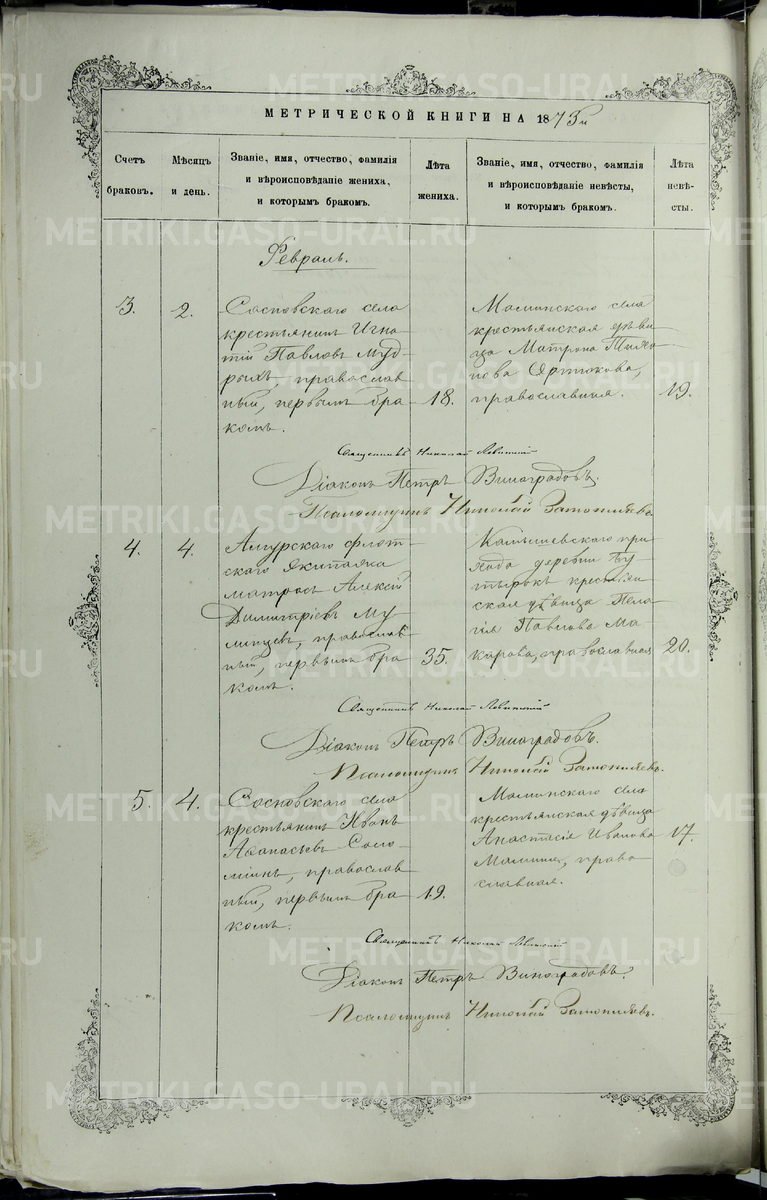 МЕТРИЧЕСКОЙ КНИГИ НА 1873й
Счетъ браковъ.
Мѣсяцъ и день.
Званіе, имя, отчество, фамилія
и вѣроисповѣданіе жениха,
и которымъ бракомъ.
Лѣта жениха.
Званіе, имя, отчество, фамилія
и вѣроисповѣданіе невѣсты,
и которымъ бракомъ.
Лѣта невѣ-
сты.
Февраль.
3.
2.
Сосновскаго села
крестьянинъ Игна
тій Павловъ Муд-
рыхъ, православ
ный, первымъ бра
комъ.
18.
Маминскаго села
крестьянская дѣви
ца Матрона
православная.
19.
Священникъ Николай Левитскій
Діаконъ Петръ Виноградовъ.
Псаломщикъ Николай
4.
4.
Амурскаго флот-
скаго экипажа
матросъ Алексій
Димитріевъ
православ
ный, первымъ бра
комъ.
35.
Камышевскаго при
хода деревни Бу
тырокъ крестьян
ская дѣвица Пела
гія Павлова Ма
карова, православная
20.
Священникъ Николай Левитскій
Діаконъ Петръ Виноградовъ.
Псаломщикъ Николай
5.
4.
Сосновскаго села
крестьянинъ Иванъ
Аѳанасьевъ Соло-
минъ, православ
ный, первымъ бра
комъ.
19.
Маминскаго села
крестьянская дѣвица
Анастасія Иванова
Мамина, право
славная.
17.
Священникъ Николай Левитскій
Діаконъ Петръ Виноградовъ.
Псаломщикъ Николай
METRIKI.GASO-URAL.RU